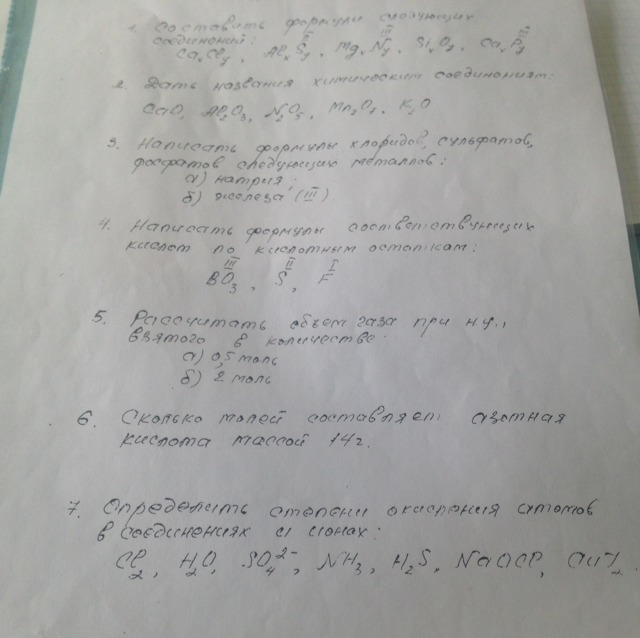 1. Составить формулы следующих
соединений:
CaxCly, AlxSy, MgxNy, SixOy, CaxPy
II III III
2. Дать названия химическим соединениям:
CaO, Al2O3, N2O5, Mn2O7, K2O
3. Написать формулы хлоридов, сульфатов,
фосфатов следующих металлов:
а) натрия;
б) железа (III)
4. Написать формулы соответствующих
кислот по кислотным остаткам:
III II I
BO3, S, F
5. Рассчитать объем газа при н.у.,
взятого в количестве
а) 0,5 моль
б) 2 моль
6. Сколько молей составляет азотная
кислота массой 14 г.
7. Определить степени окисления атомов
в соединениях и ионах:
Cl2, H2O, SO4 2-, NH3, H2S, NaOCl,